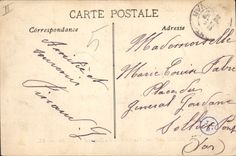 CARTE POSTALE
Correspondance
Adresse
Amitié et
souvenir
Mademoiselle
Marie Louise Fabre
Place du
General Gordane
Solliès Pont
(Var)